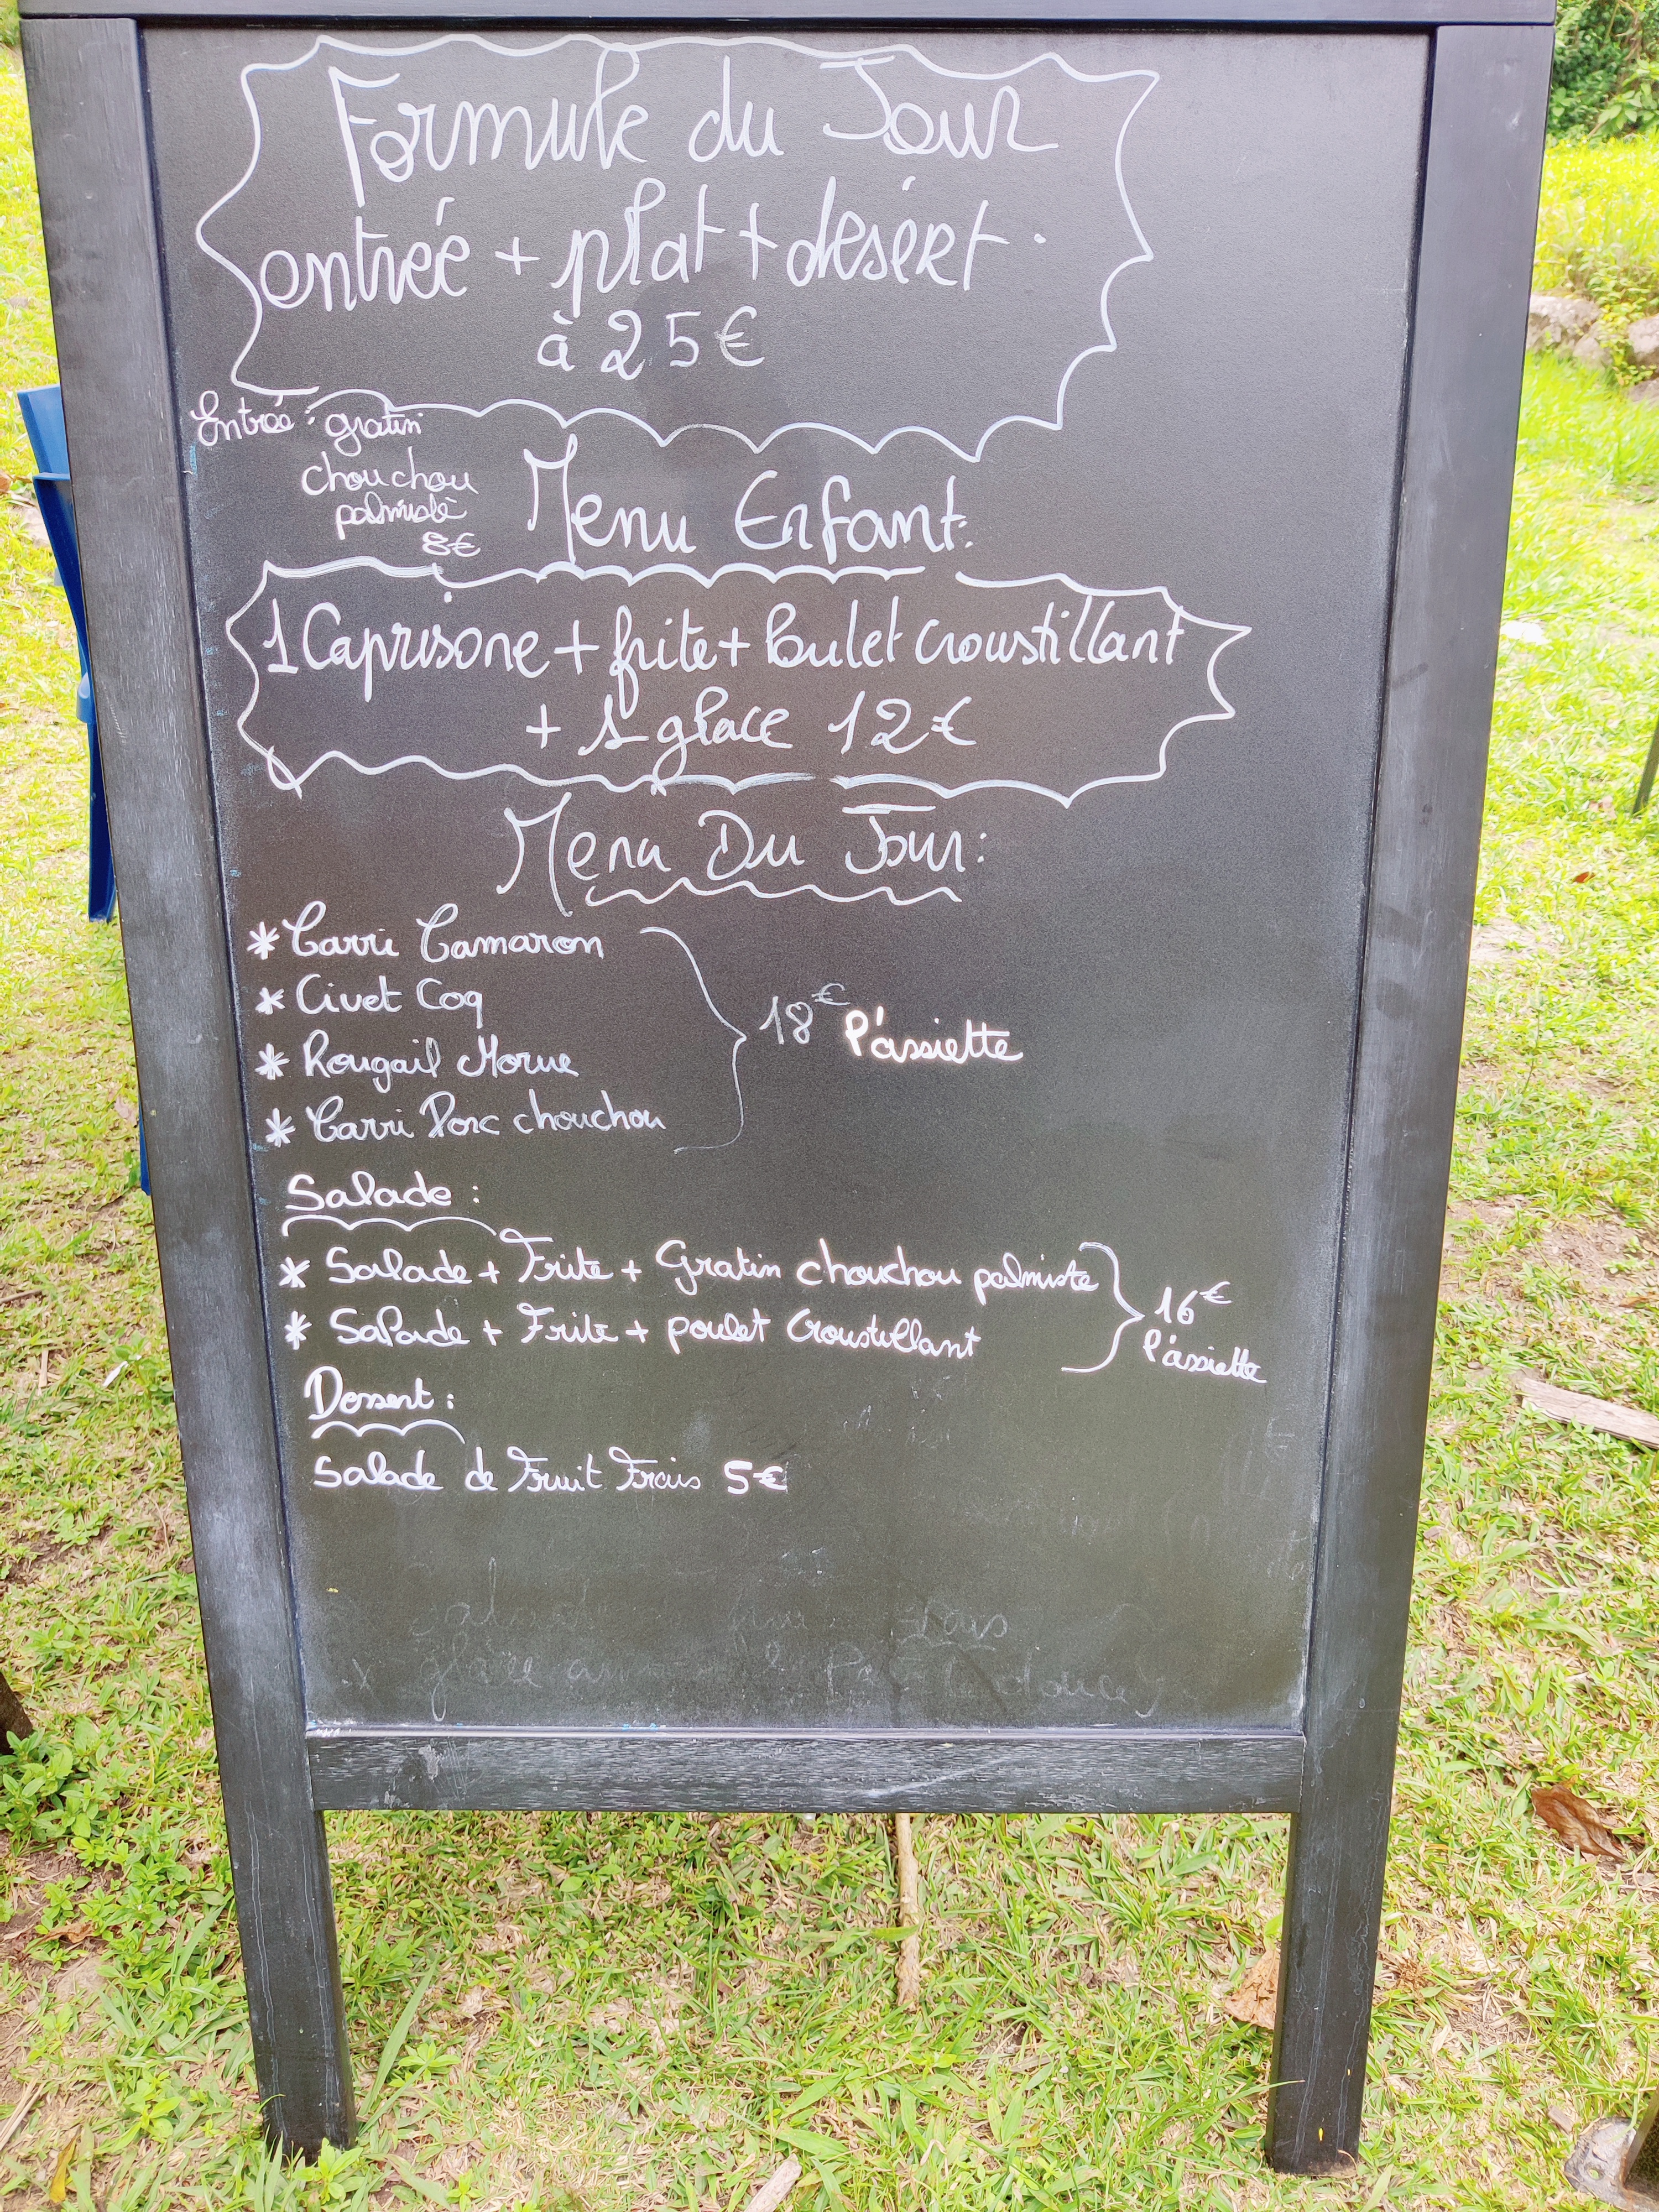 Formule du Jour
entrée + plat + desért.
à 25€
Entrée: gratin
chouchou
palmiste
8€
Menu Enfant:
1 Caprisone + frite + Poulet Croustillant
+ 1 glace 12€
Menu Du Jour:
* Carri Camaron
* Civet Coq
* Rougail Morue
* Carri Porc chouchou
18€ l'assiette
Salade:
* Salade + Frite + Gratin chouchou palmiste
* Salade + Frite + poulet Croustillant
16€
l'assiette
Dessert:
Salade de Fruit Frais 5€